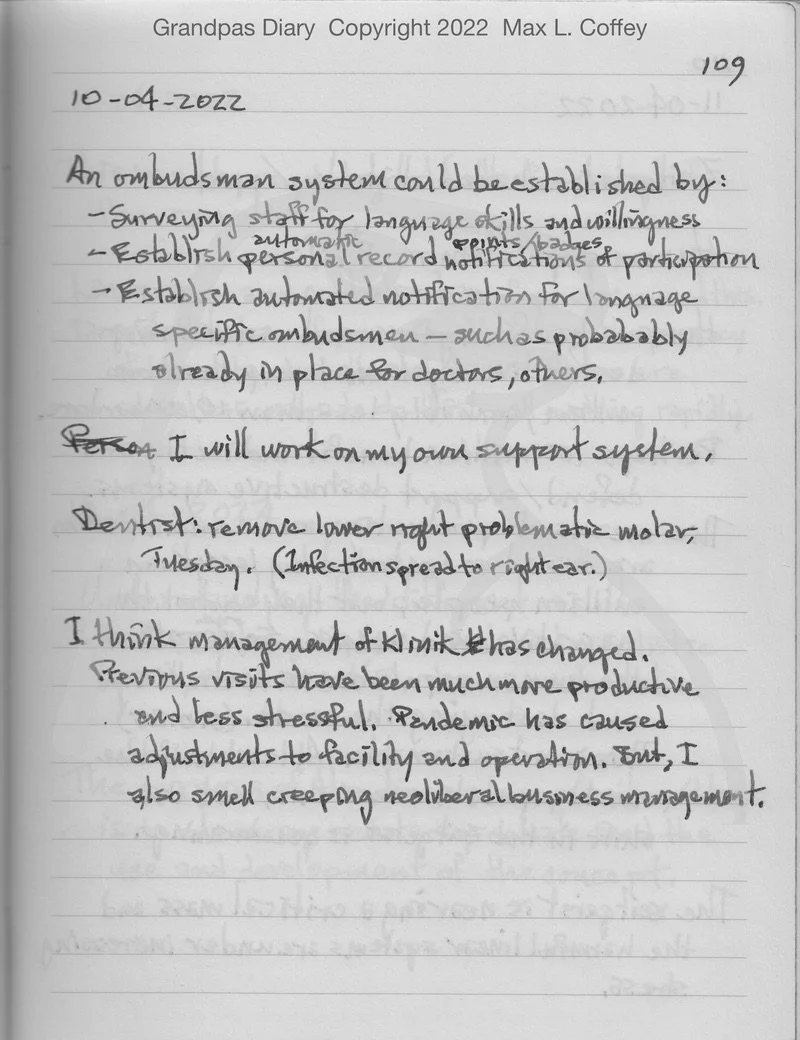 Grandpas Diary Copyright 2022 Max L. Coffey
109
10-04-2022
An ombudsman system could be established by:
- Surveying staff for language skills and willingness
automatic points/badges
- Establish personal record notifications of participation
- Establish automated notification for language
specific ombudsmen - such as probabably
already in place for doctors, others.
I will work on my own support system.
Dentist: remove lower right problematic molar,
Tuesday. (Infection spread to right ear.)
I think management of Klinik has changed.
Previous visits have been much more productive
and less stressful. Pandemic has caused
adjustments to facility and operation. But, I
also smell creeping neoliberal business management.